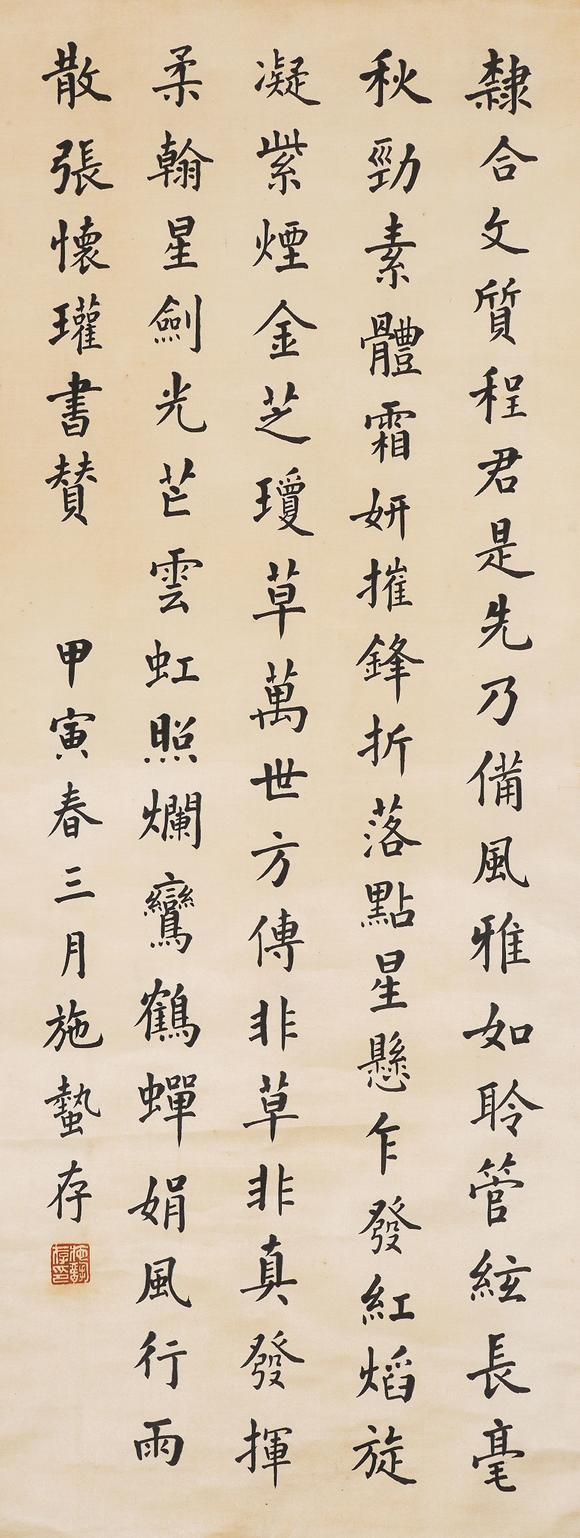 隸合文質程君是先乃備風雅如聆管絃長毫
秋勁素體霜妍摧鋒折落點星懸乍發紅焰旋
凝紫煙金芝瓊草萬世方傳非草非真發揮
柔翰星劍光芒雲虹照爛鸞鶴蟬娟風行雨
散張懷瓘書贊 甲寅春三月施蟄存
施蟄存印